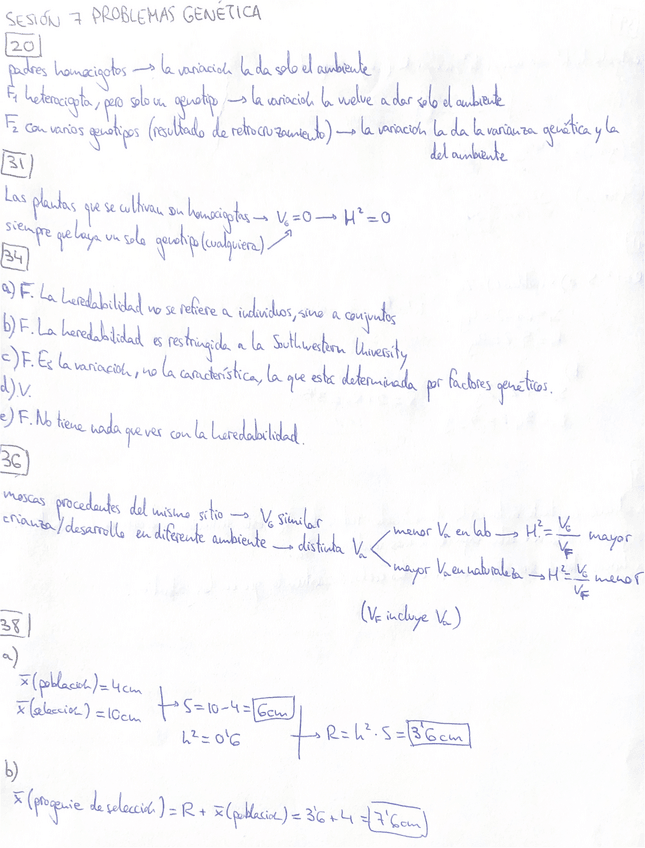 SESIÓN 7 PROBLEMAS GENÉTICA
20
padres homocigotos → la variación la da solo el ambiente
F₁ heterocigota, pero solo un genotipo → la variación la vuelve a dar solo el ambiente
F₂ con varios genotipos (resultado de retrocruzamiento) → la variación la da la varianza genética y la
del ambiente
31
Las plantas que se cultivan son homocigotas → V_G = 0 → H² = 0
siempre que haya un solo genotipo (cualquiera)
34
a) F. La heredabilidad no se refiere a individuos, sino a conjuntos
b) F. La heredabilidad es restringida a la Southwestern University
c) F. Es la variación, no la característica, la que está determinada por factores genéticos.
d) V.
e) F. No tiene nada que ver con la heredabilidad.
36
moscas procedentes del mismo sitio → V_G similar
crianza/desarrollo en diferente ambiente → distinta Va
menor Va en lab → H² = V_G/V_F mayor
mayor Va en naturaleza → H² = V_G/V_F menor
(V_F incluye Va)
38
a)
x̄ (población) = 4cm
x̄ (selección) = 10cm
→ S = 10 - 4 = 6cm
h² = 0'6
→ R = h² · S = 3'6cm
b)
x̄ (progenie de selección) = R + x̄ (población) = 3'6 + 4 = 7'6cm